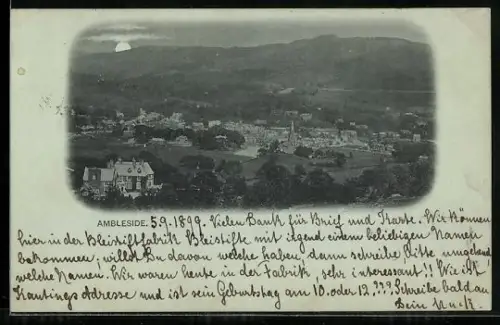 AMBLESIDE. 5.9.1899. Vielen Dank für Brief und Karte. Wir können
hier in der Bleistiftfabrik Bleistifte mit irgend einem beliebigen Namen
bekommen, willst Du davon welche haben, dann schreibe bitte umgehend
welche Namen. Wir waren heute in der Fabrik, sehr interessant!! Wie ist
Adresse und ist sein Geburtstag am 10. oder 13.??? Schreibe bald an
Dein